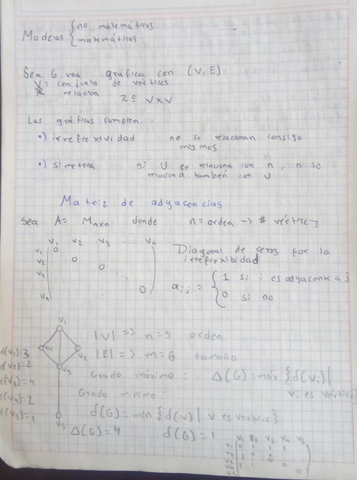 Modelos { no matemáticos
matemáticos
Sea G una gráfica con (V, E)
V = conjunto de vértices
R relación
R ⊆ V x V
Las gráficas cumplen:
•) irreflexividad no se relacionan consigo
mismos
•) simetría si U se relaciona con n, n se
relaciona también con U
Matriz de adyacencias
Sea A = Mnxn donde n = orden → # vértices
V1 V2 V3 ... Vn
V1 0
V2 0
V3 0
Vn 0
Diagonal de ceros por la
irreflexibidad
aij = { 1 si i es adyacente a j
0 si no
V1
V2
V5
d(V1)=3
d(V2)=2
d(V3)=4
d(V4)=2
d(V5)=1
|V| => n=5 orden
|E| => m=6 tamaño
Grado máximo: Δ(G) = máx { d(vi) |
vi es vértice }
Grado mínimo:
δ(G) = min { d(v) | v es vértice }
Δ(G) = 4 δ(G) = 1
V1 V2 V3 V4 V5